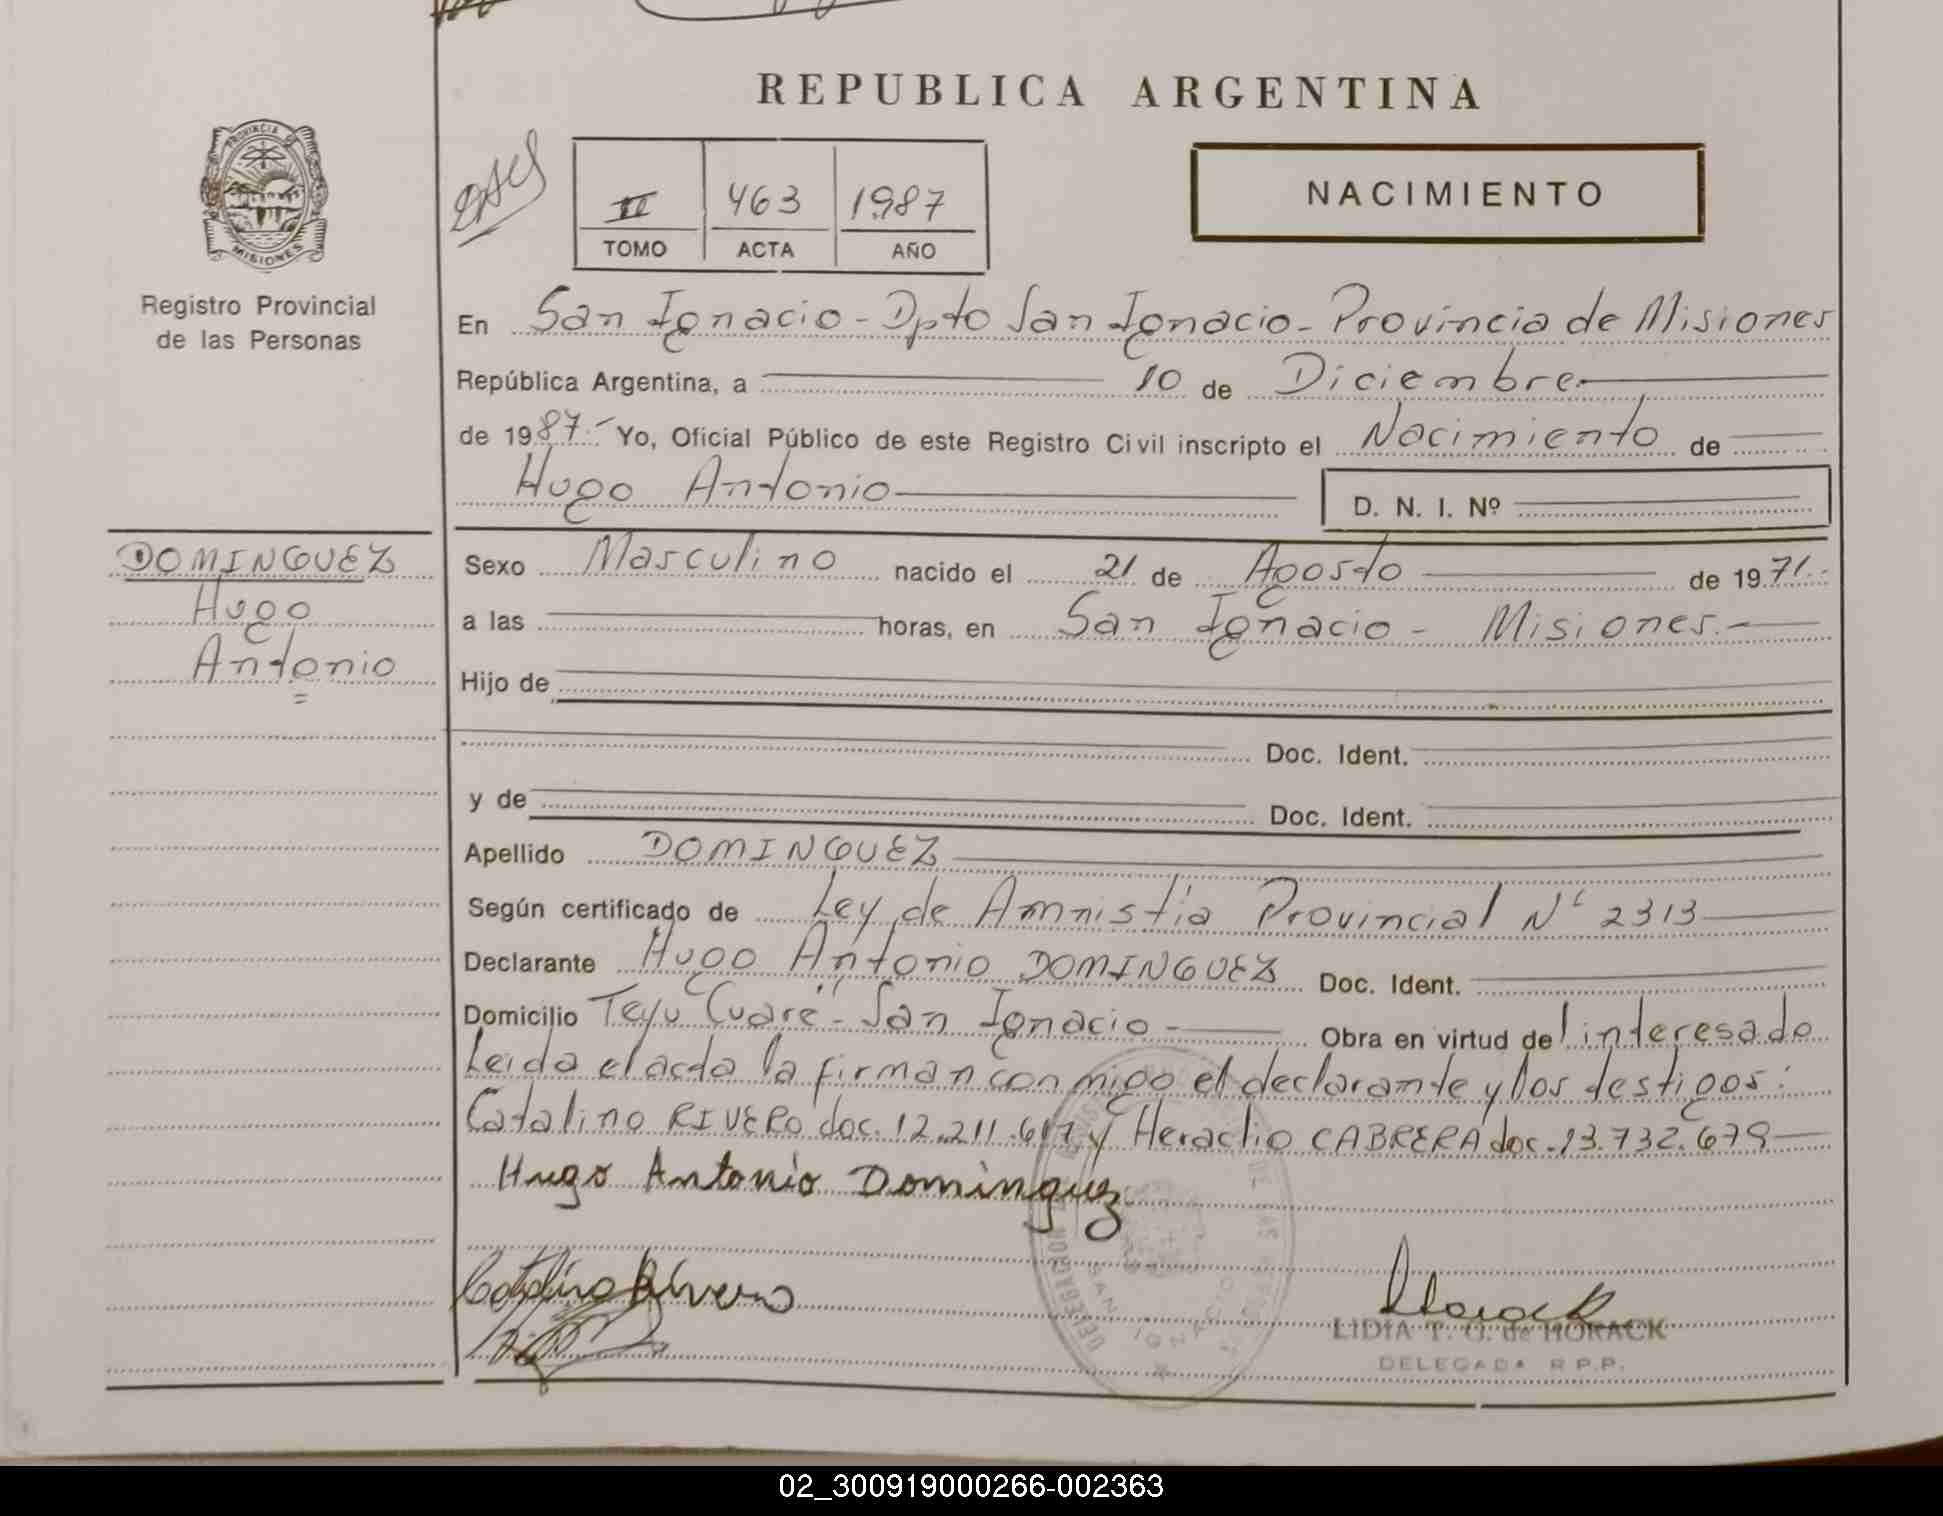 REPUBLICA ARGENTINA
PROVINCIA DE MISIONES
Registro Provincial
de las Personas
II 463 1987
TOMO ACTA AÑO
NACIMIENTO
En San Ignacio - Dpto San Ignacio - Provincia de Misiones
República Argentina, a 10 de Diciembre
de 1987.- Yo, Oficial Público de este Registro Civil inscripto el Nacimiento de
Hugo Antonio D. N. I. Nº
DOMINGUEZ
Hugo
Antonio
Sexo Masculino nacido el 21 de Agosto de 1971.-
a las horas, en San Ignacio - Misiones.-
Hijo de
Doc. Ident.
y de Doc. Ident.
Apellido DOMINGUEZ
Según certificado de Ley de Amnistia Provincial Nº 2313
Declarante Hugo Antonio DOMINGUEZ Doc. Ident.
Domicilio Teyu "Cuaré"- San Ignacio - Obra en virtud del interesado
Leida el acta la firman conmigo el declarante y los testigos:
Catalino RIVERO doc. 12.211.617 y Heraclio CABRERA doc. 13.732.679
Hugo Antonio Dominguez
Catalino Rivero
Horack
LIDIA T. O. de HORACK
DELEGADA R.P.P.
DELEGACION
SAN IGNACIO
02_300919000266-002363